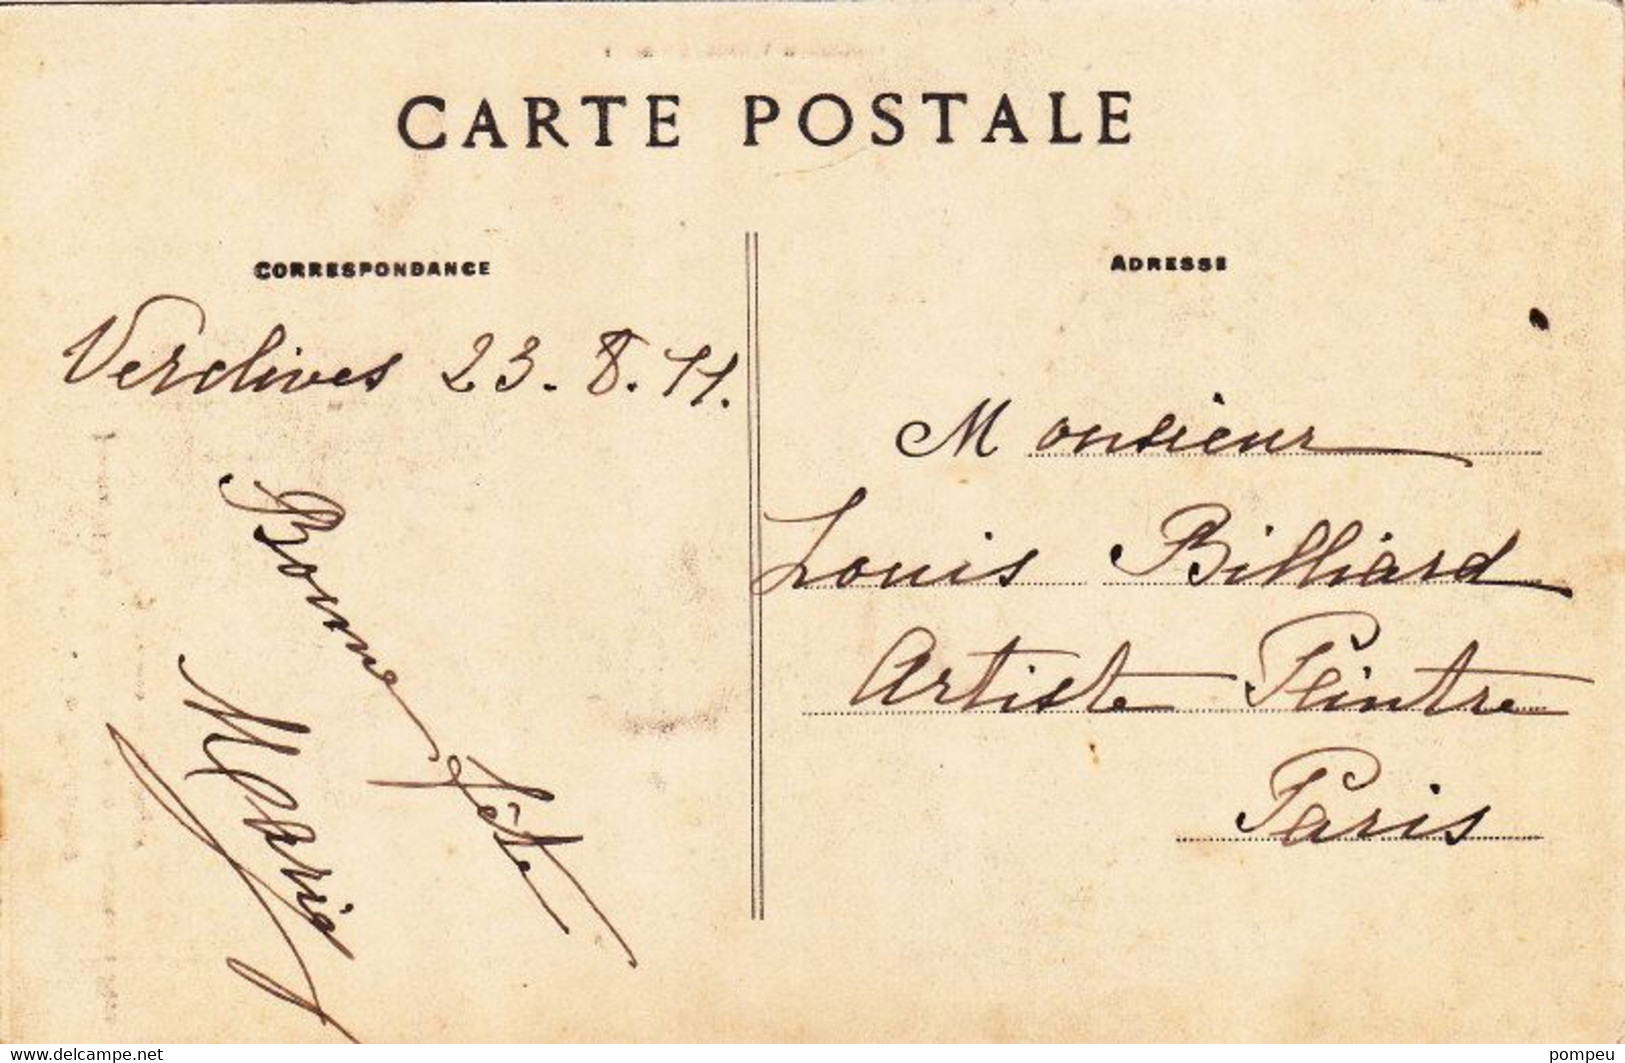 CARTE POSTALE
CORRESPONDANCE
ADRESSE
Verclives 23.8.11.
Bonne fête
Maria
Monsieur
Louis Billiard
Artiste Peintre
Paris
www.delcampe.net
pompeu